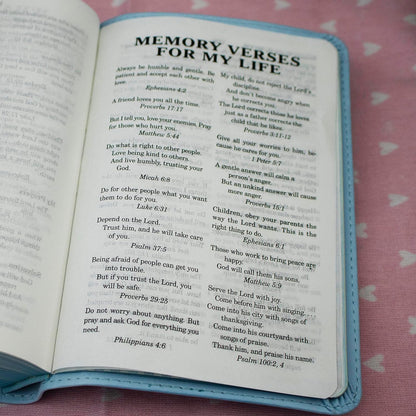 MEMORY VERSES
FOR MY LIFE
Always be humble and gentle. Be
patient and accept each other with
love.
Ephesians 4:2
A friend loves you all the time.
Proverbs 17:17
But I tell you, love your enemies. Pray
for those who hurt you.
Matthew 5:44
Do what is right to other people.
Love being kind to others.
And live humbly, trusting your
God.
Micah 6:8
Do for other people what you want
them to do for you.
Luke 6:31
Depend on the Lord.
Trust him, and he will take care
of you.
Psalm 37:5
Being afraid of people can get you
into trouble.
But if you trust the Lord, you
will be safe.
Proverbs 29:25
Do not worry about anything. But
pray and ask God for everything you
need.
Philippians 4:6
My child, do not reject the Lord's
discipline.
And don't become angry when
he corrects you.
The Lord corrects those he loves
just as a father corrects the
child that he likes.
Proverbs 3:11-12
Give all your worries to him, be-
cause he cares for you.
1 Peter 5:7
A gentle answer will calm a
person's anger.
But an unkind answer will cause
more anger.
Proverbs 15:1
Children, obey your parents the
way the Lord wants. This is the
right thing to do.
Ephesians 6:1
Those who work to bring peace are
happy.
God will call them his sons.
Matthew 5:9
Serve the Lord with joy.
Come before him with singing. . . .
Come into his city with songs of
thanksgiving.
Come into his courtyards with
songs of praise.
Thank him, and praise his name.
Psalm 100:2, 4